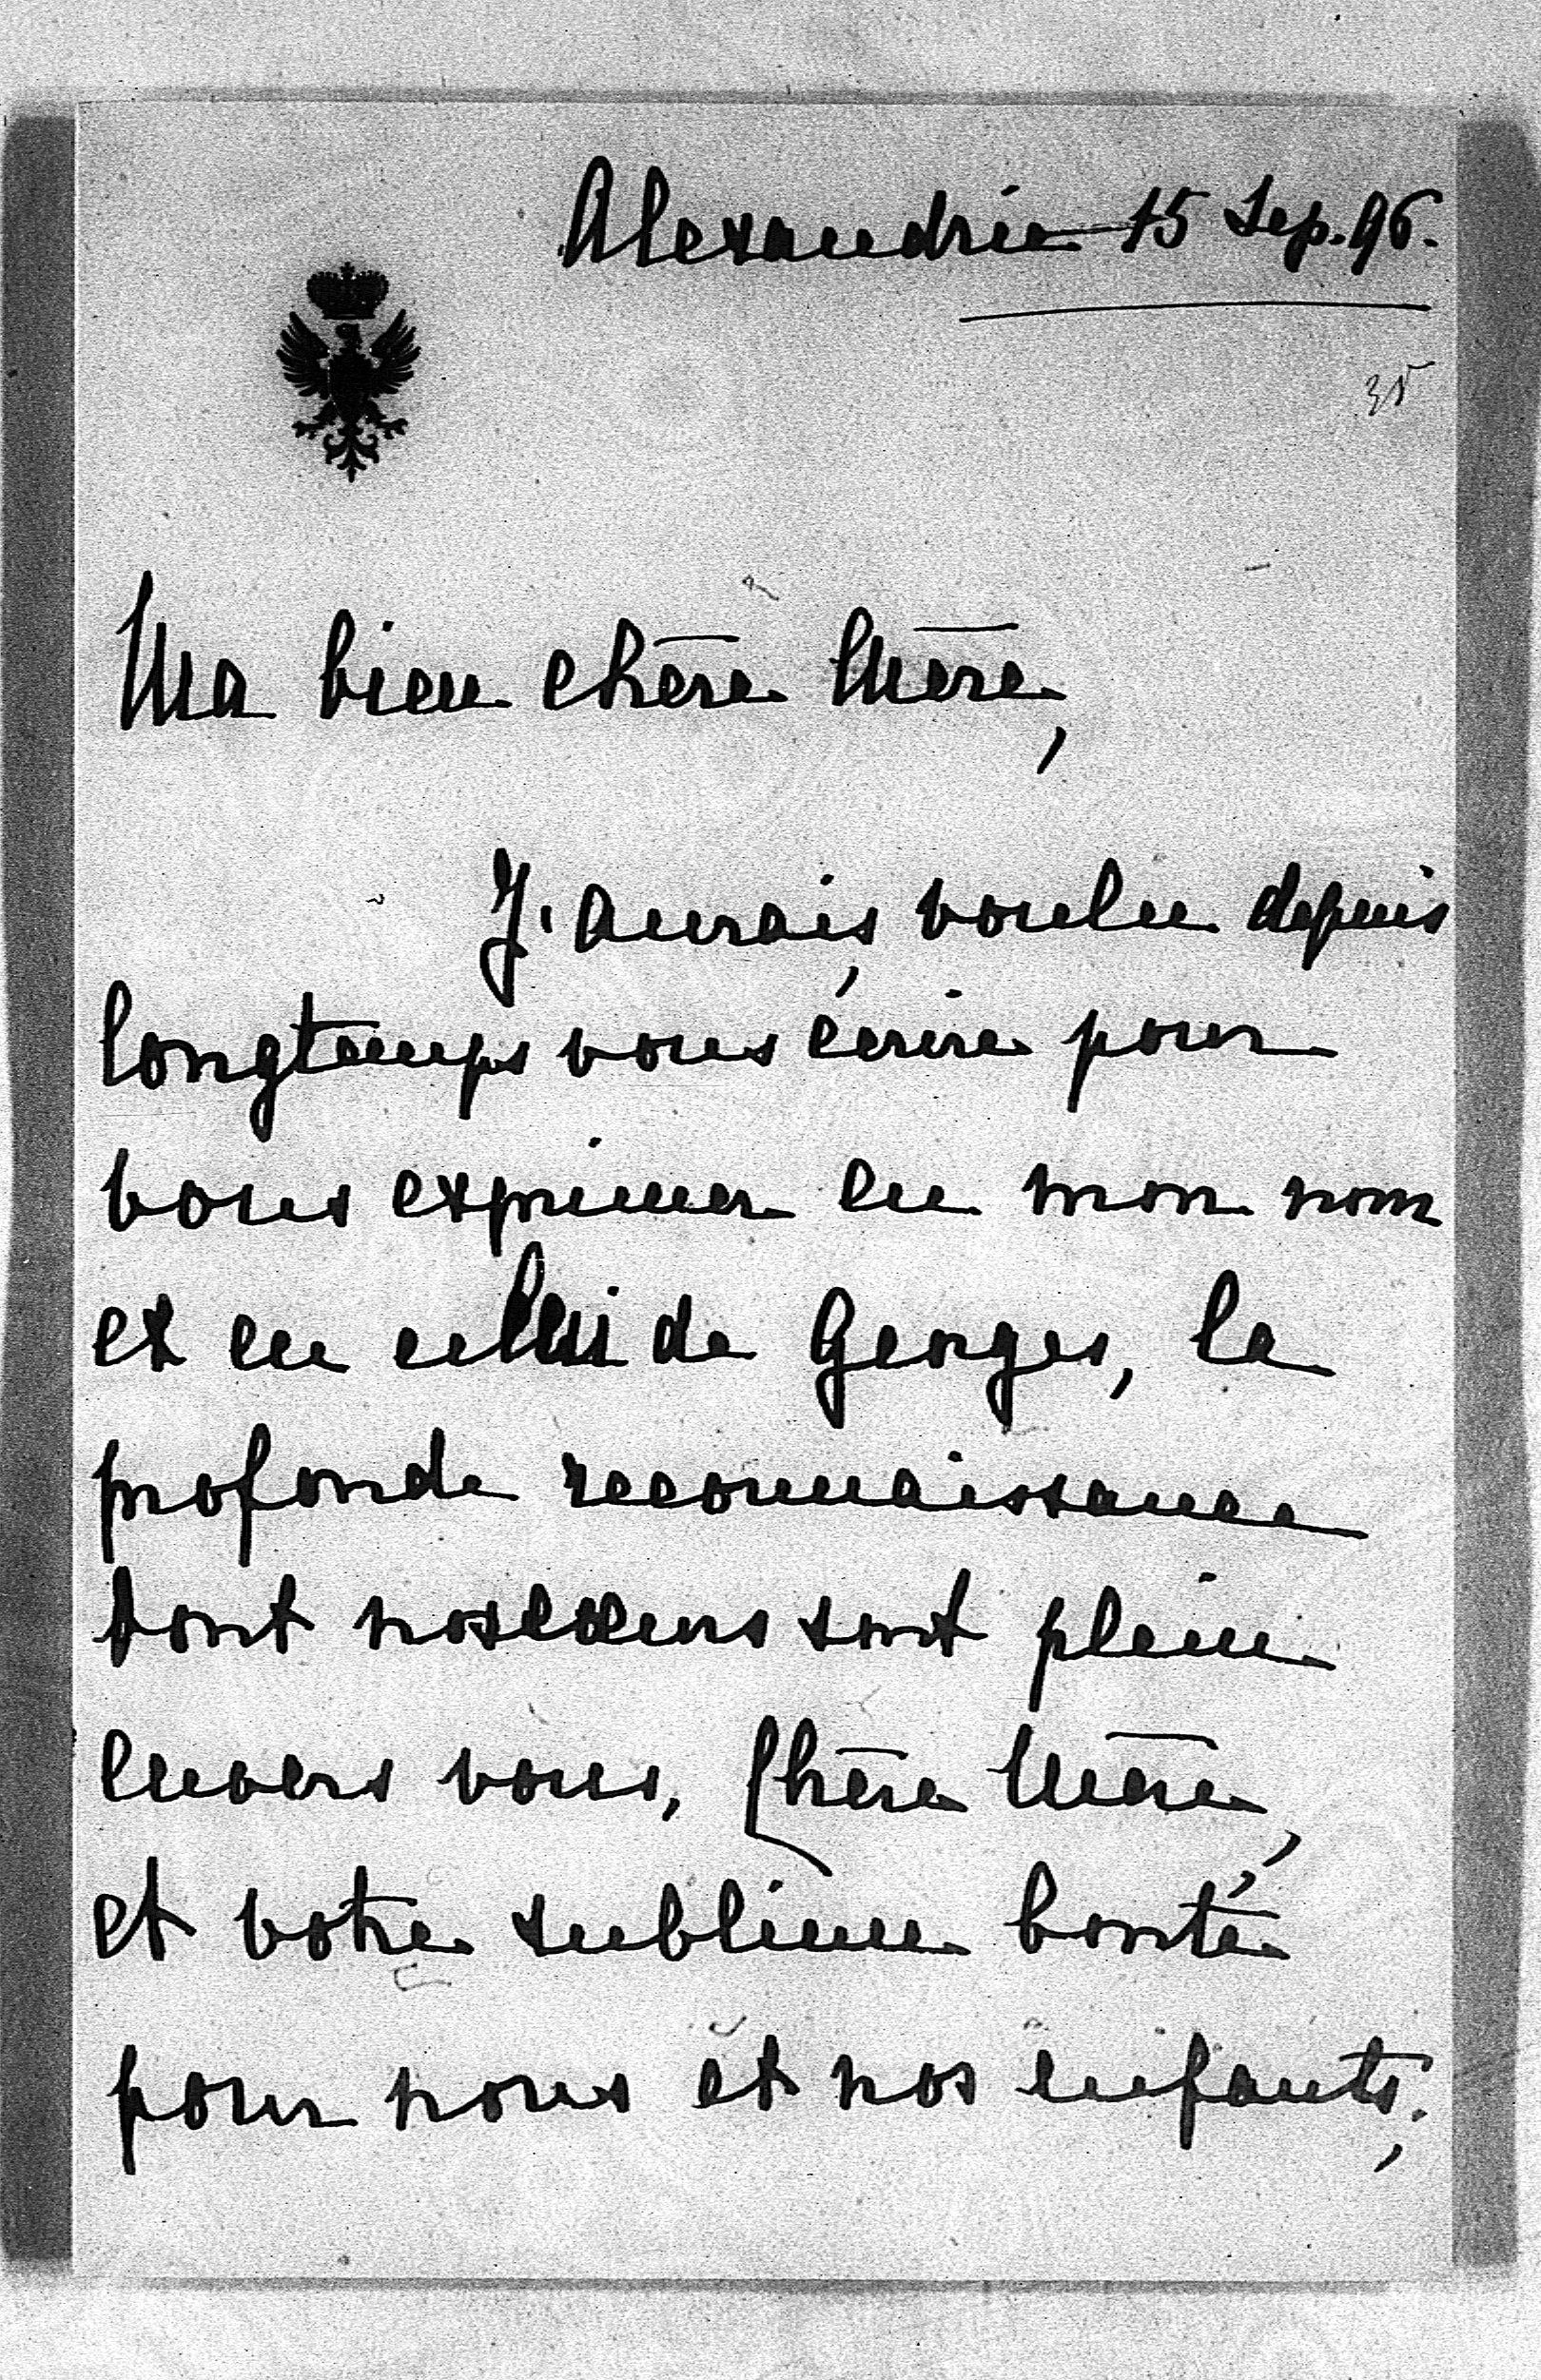 Alexandrie 15 Sep. 96.
35
Ma bien chère Mère,
J'aurais, voulu depuis
longtemps vous écrire pour
vous exprimer en mon nom
et en celui de Georges, la
profonde reconnaissance
dont nos cœurs sont plein
envers vous, Chère Mère,
et votre sublime bonté
pour nous et nos enfants,